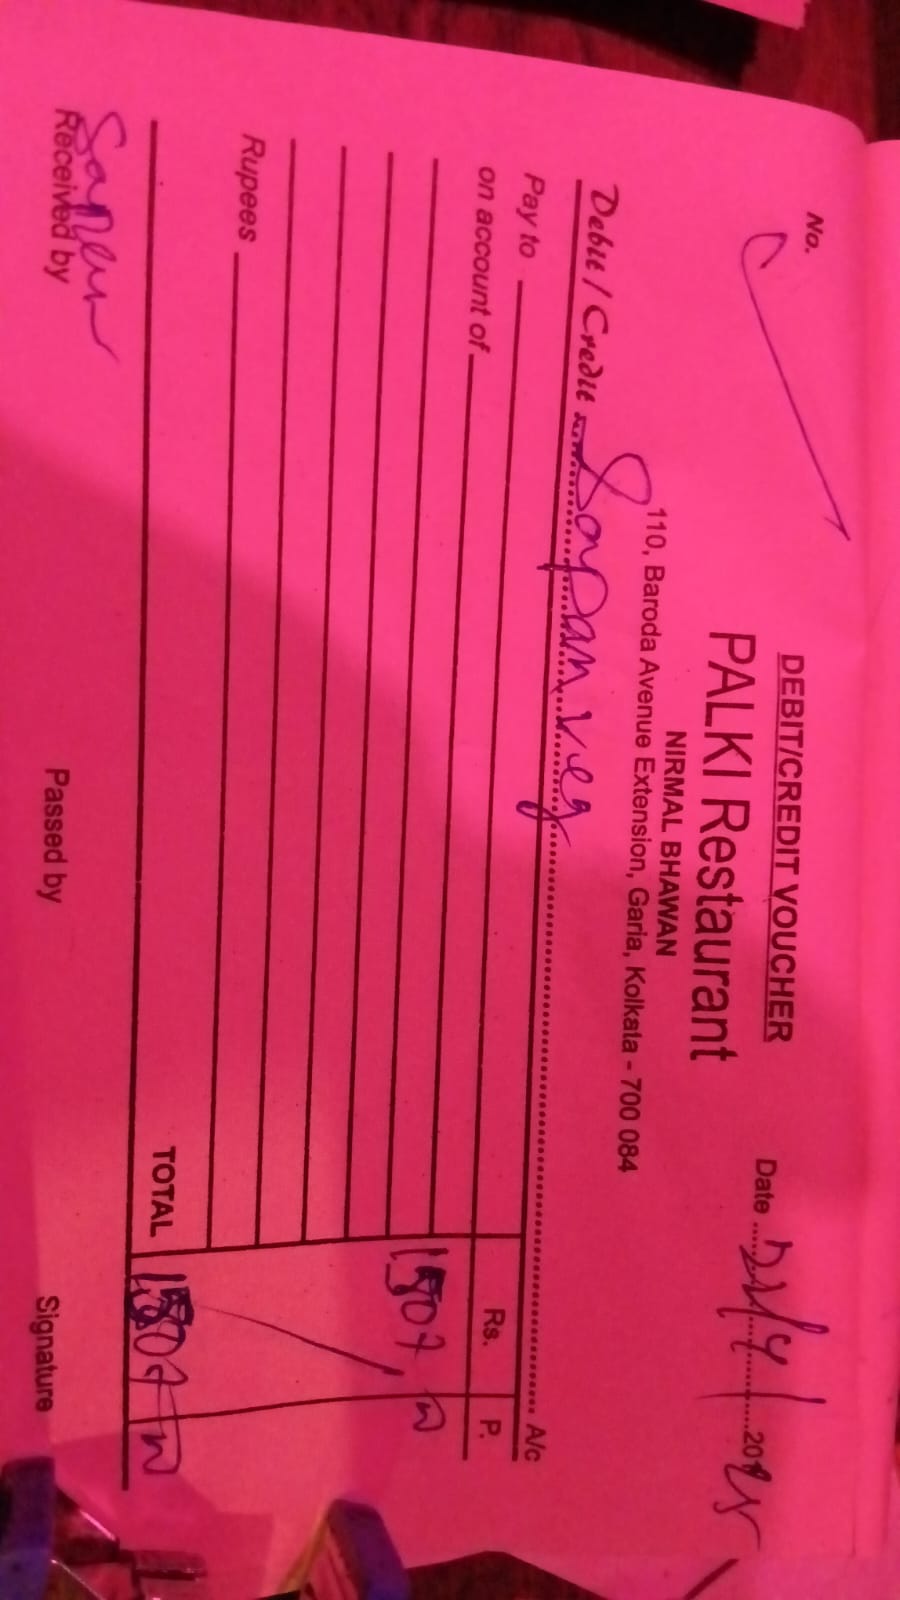 No.
DEBIT/CREDIT VOUCHER
PALKI Restaurant
Date
NIRMAL BHAWAN
110, Baroda Avenue Extension, Garia, Kolkata - 700 084
Debit / Credit Sapan veg A/c
Pay to Rs. P.
on account of
Rupees
TOTAL
Sapan
Received by Passed by Signature